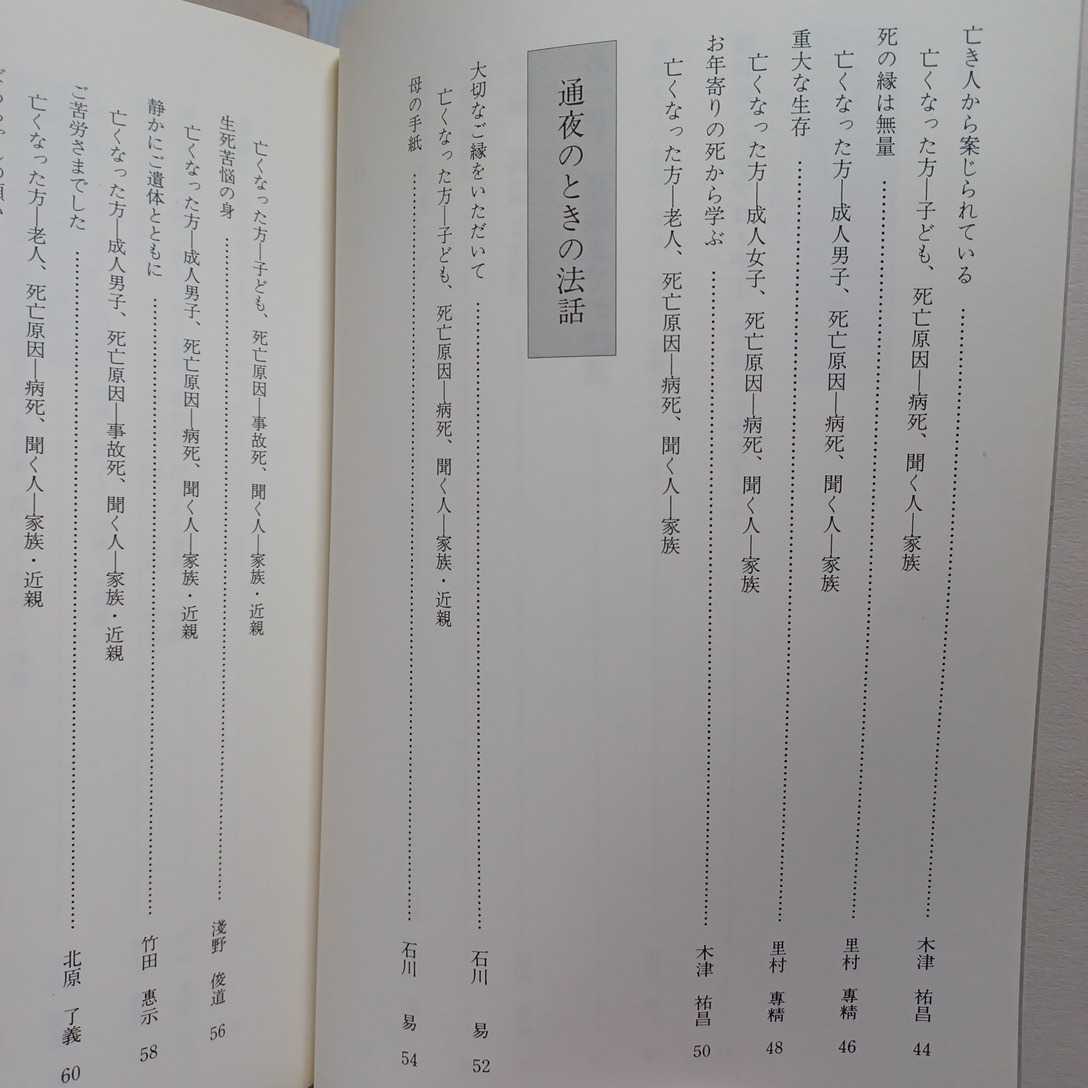 亡き人から案じられている……木津　祐昌　44
亡くなった方―子ども、死亡原因―病死、聞く人―家族
死の縁は無量……里村　專精　46
亡くなった方―成人男子、死亡原因―病死、聞く人―家族
重大な生存……里村　專精　48
亡くなった方―成人女子、死亡原因―病死、聞く人―家族
お年寄りの死から学ぶ……木津　祐昌　50
亡くなった方―老人、死亡原因―病死、聞く人―家族
通夜のときの法話
大切なご縁をいただいて……石川　易　52
亡くなった方―子ども、死亡原因―病死、聞く人―家族・近親
母の手紙……石川　易　54
亡くなった方―子ども、死亡原因―事故死、聞く人―家族・近親
生死苦悩の身……淺野　俊道　56
亡くなった方―成人男子、死亡原因―病死、聞く人―家族・近親
静かにご遺体とともに……竹田　惠示　58
亡くなった方―成人男子、死亡原因―事故死、聞く人―家族・近親
ご苦労さまでした……北原　了義　60
亡くなった方―老人、死亡原因―病死、聞く人―家族・近親